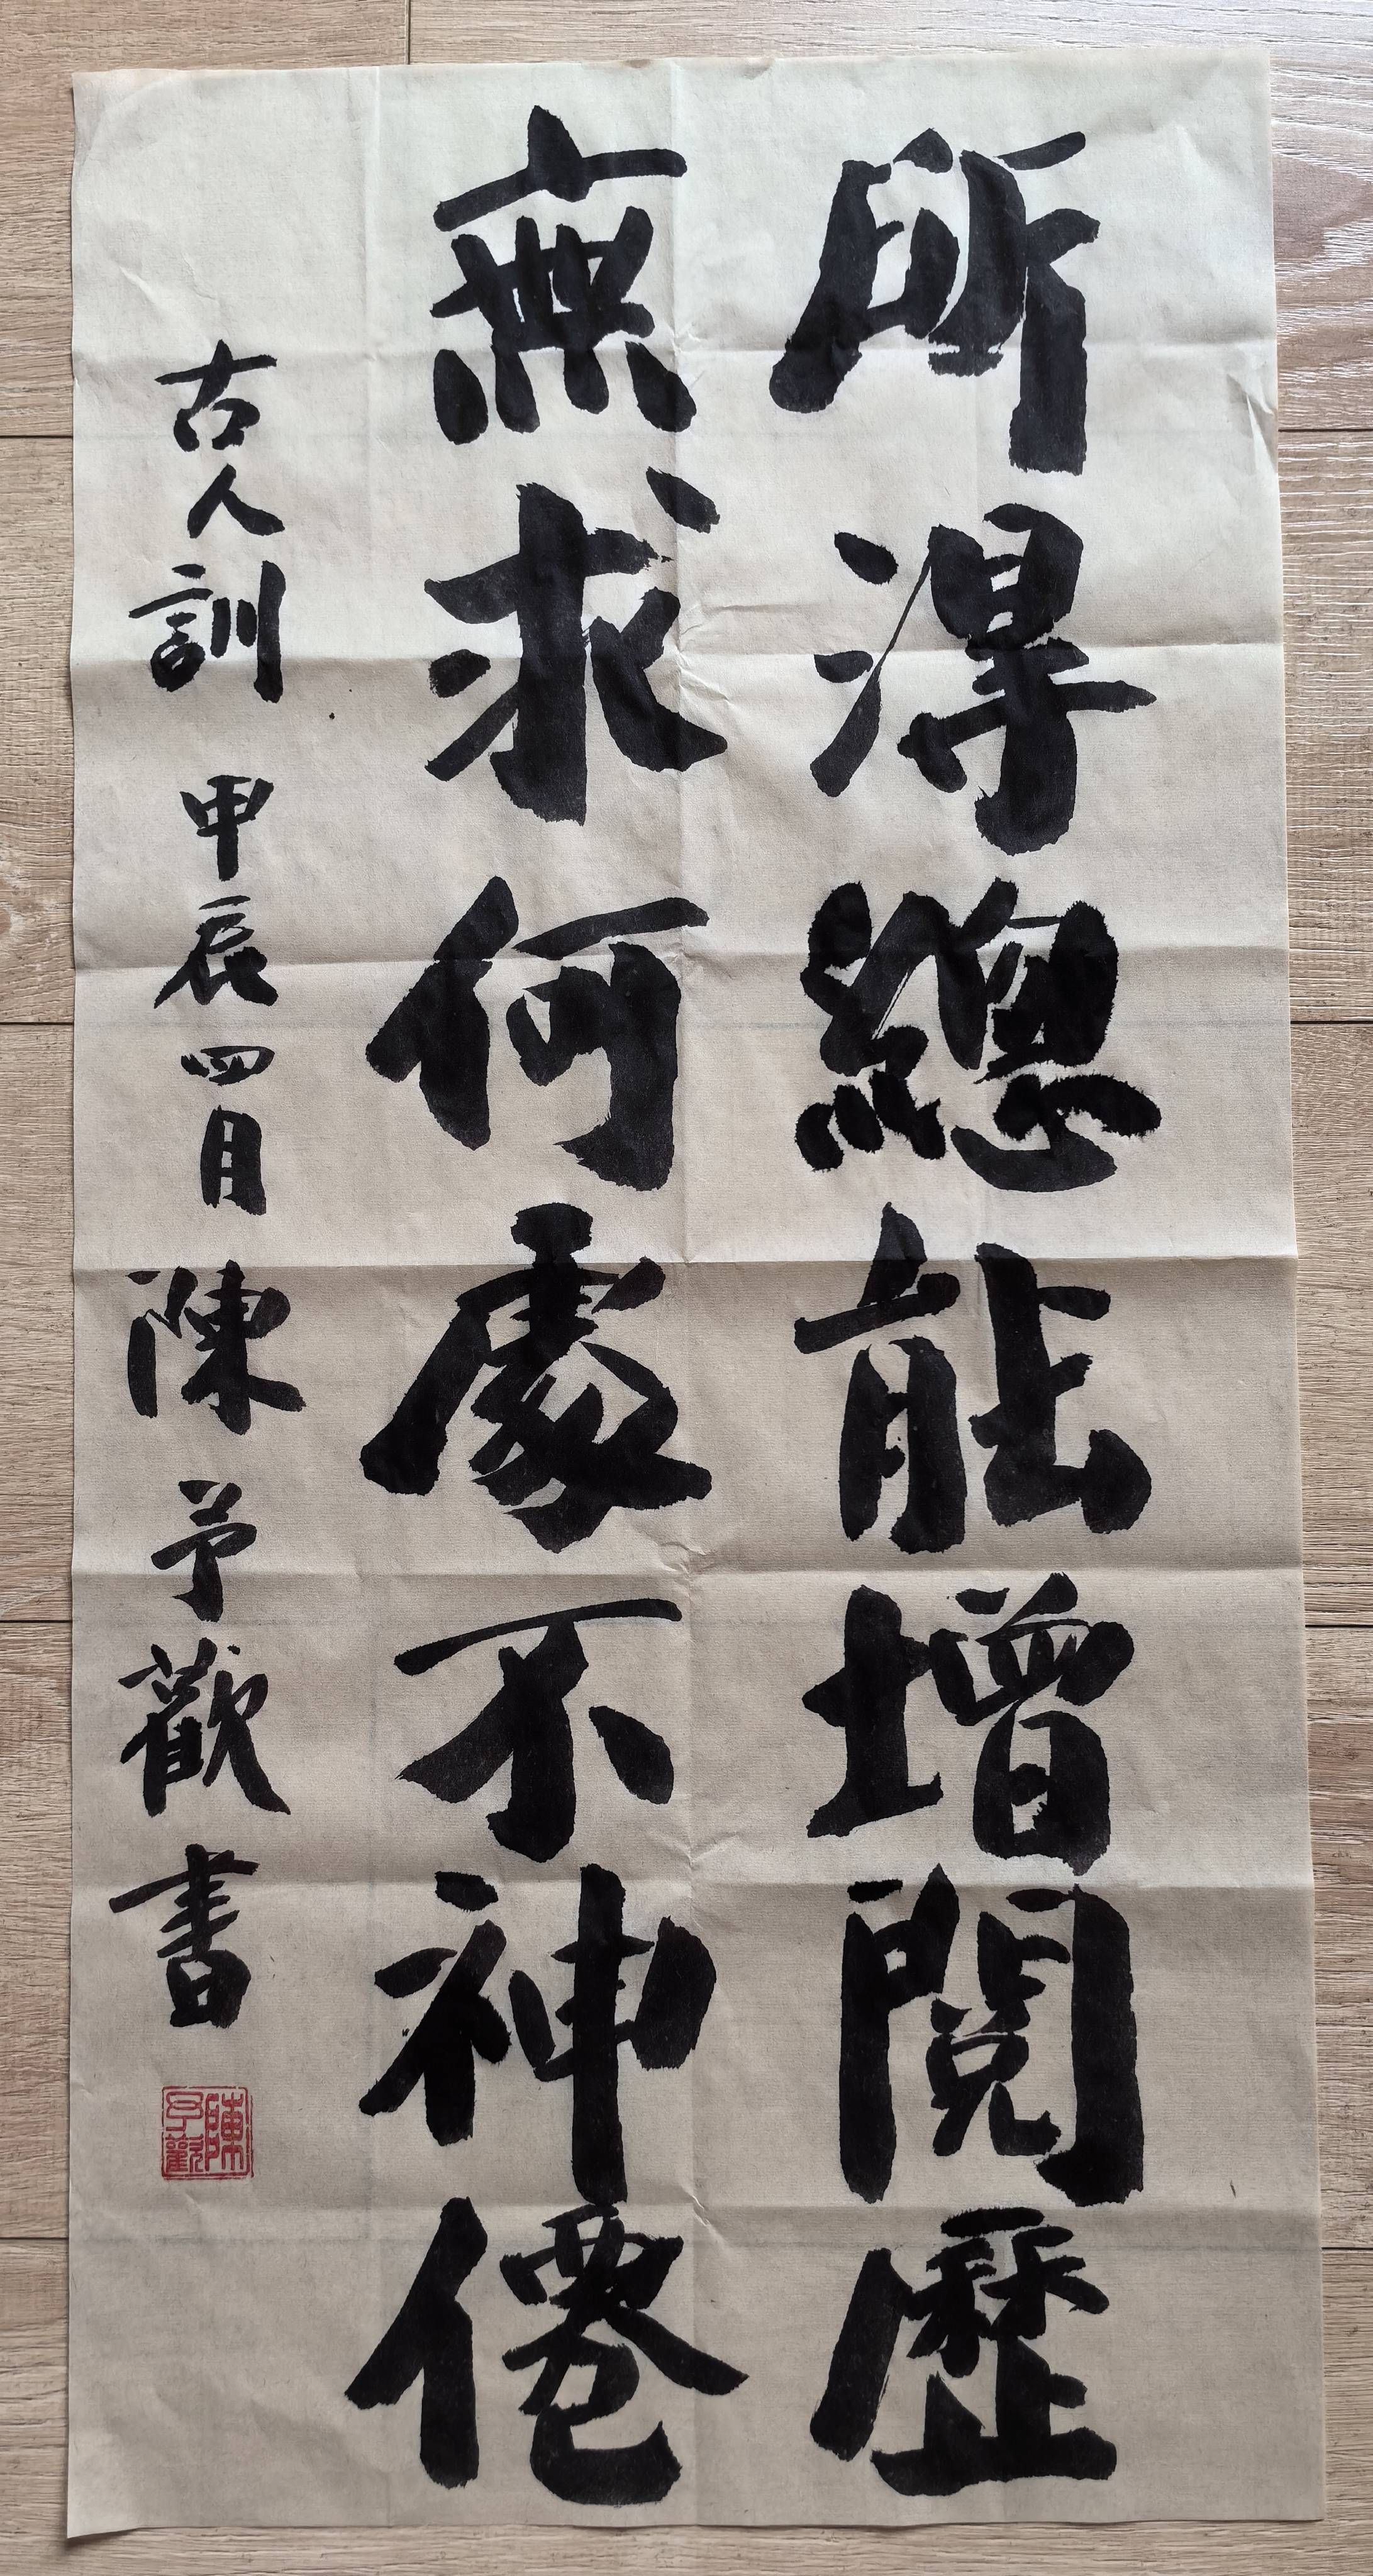 所得總能增閱歷
無求何處不神僊
古人訓 甲辰四月 陳予歡書
陳予歡